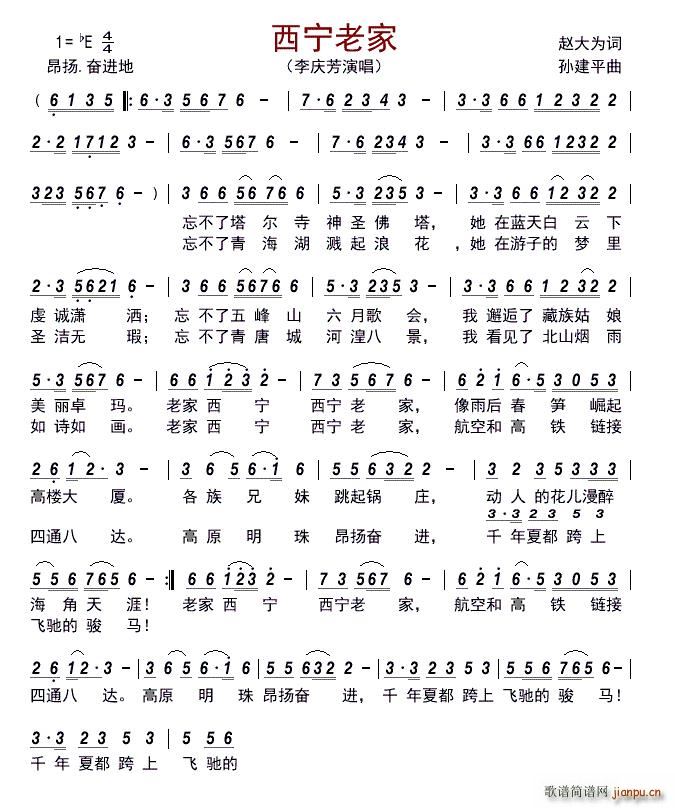 西宁老家
1= ♭E 4/4
赵大为词
昂扬.奋进地
（李庆芳演唱）
孙建平曲
( 6 1 3 5 |: 6·3 5 6 7 6 - | 7·6 2 3 4 3 - | 3·3 6 6 1 2 3 2 2 |
2·2 1 7 1 2 3 - | 6·3 5 6 7 6 - | 7·6 2 3 4 3 - | 3·3 6 6 1 2 3 2 2 |
3 2 3 5 6 7 6 - ) | 3 6 6 5 6 7 6 6 | 5·3 2 3 5 3 - | 3 6 6 1 2 3 2 2 |
忘不了塔 尔 寺 神 圣 佛 塔， 她 在蓝天白 云 下
忘不了青 海 湖 溅 起 浪 花 ，她 在游子的 梦 里
2·3 5 6 2 1 6 - | 3 6 6 5 6 7 6 6 | 5·3 2 3 5 3 - | 3 6 6 1 2 3 2 2 |
虔 诚潇 洒； 忘 不了五 峰 山 六 月歌 会， 我 邂逅了 藏族姑 娘
圣 洁无 瑕； 忘 不了青 唐 城 河 湟八 景， 我 看见了 北山烟 雨
5·3 5 6 7 6 - | 6 6 1 2 3 2 - | 7 3 5 5 6 7 6 | 6 2 1 6·5 3 0 5 3 |
美 丽卓 玛。 老家 西 宁 西宁 老 家， 像雨后 春 笋 崛起
如 诗如 画。 老家 西 宁 西宁 老 家， 航空和 高 铁 链接
2 6 1 2·3 - | 3 6 5 6·1 6 | 5 5 6 3 2 2 - | 3 2 3 5 3 3 3 |
高楼大 厦。 各 族 兄 妹 跳起锅 庄， 动 人 的花儿漫醉
3·3 2 3 5 3
四通八 达。 高 原 明 珠 昂扬奋 进， 千 年夏都 跨 上
5 5 6 7 6 5 6 - :| 6 6 1 2 3 2 - | 7 3 5 5 6 7 6 | 6 2 1 6·5 3 0 5 3 |
海 角 天 涯！ 老家 西 宁 西宁 老 家， 航空和 高 铁 链接
飞驰的 骏 马！
2 6 1 2·3 - | 3 6 5 6·1 6 | 5 5 6 3 2 2 - | 3·3 2 3 5 3 | 5 5 6 7 6 5 6 - |
四通八 达。高原 明 珠 昂扬奋 进，千 年夏都 跨上 飞驰的 骏 马！
3·3 2 3 5 3 | 5 5 6
千 年 夏都 跨 上 飞 驰的
歌谱简谱网
jianpu.cn